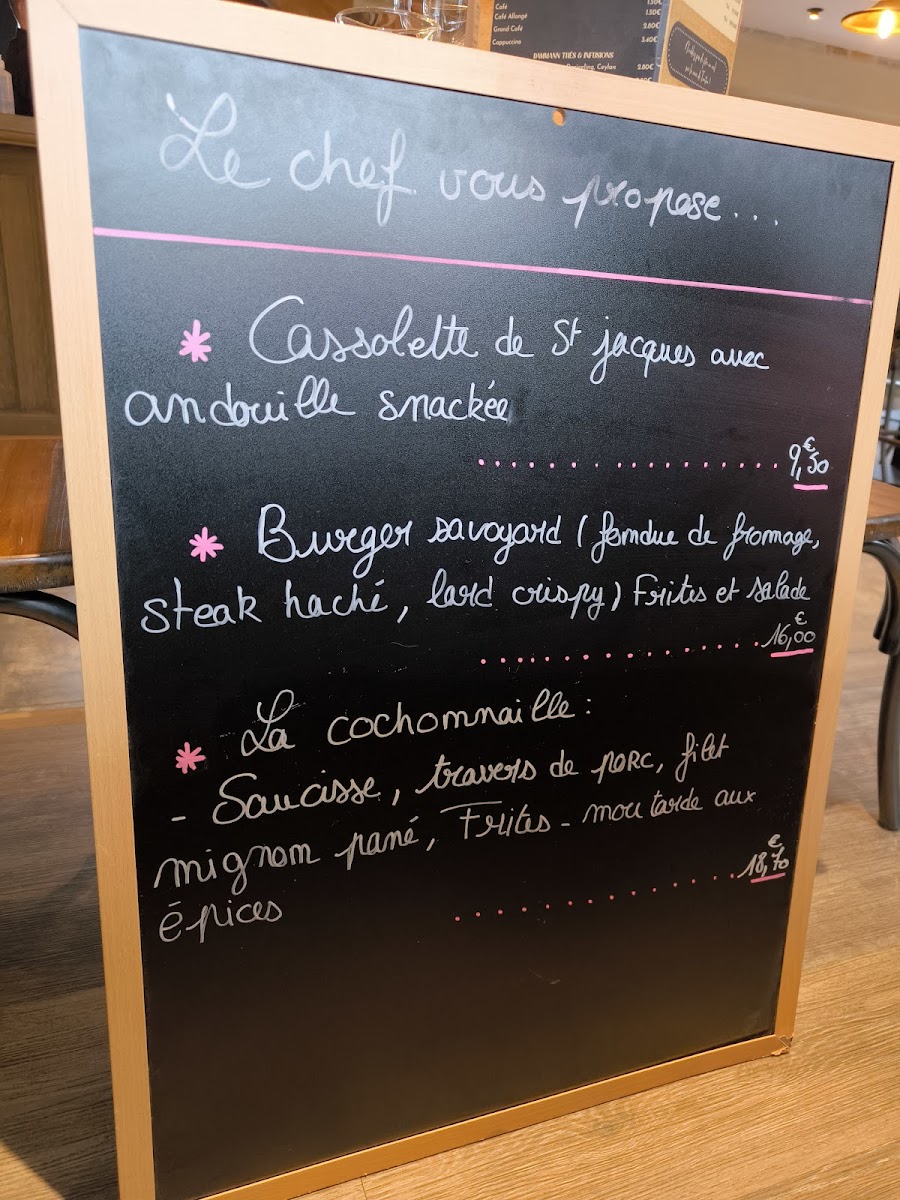 Café 1.50€
Café Allongé 1.50€
Grand Café 2.80€
Cappuccino 3.40€
DAMMANN THÉS & INFUSIONS
Darjeeling, Ceylan 2.80€
Le chef vous propose....
* Cassolette de St jacques avec
andouille snackée
.................. 9,€50
* Burger savoyard (fondue de fromage,
steak haché, lard crispy) Frites et salade
.................. 16,€00
* La cochonnaille :
- Saucisse, travers de porc, filet
mignon pané, Frites - moutarde aux
épices .................. 18,€70